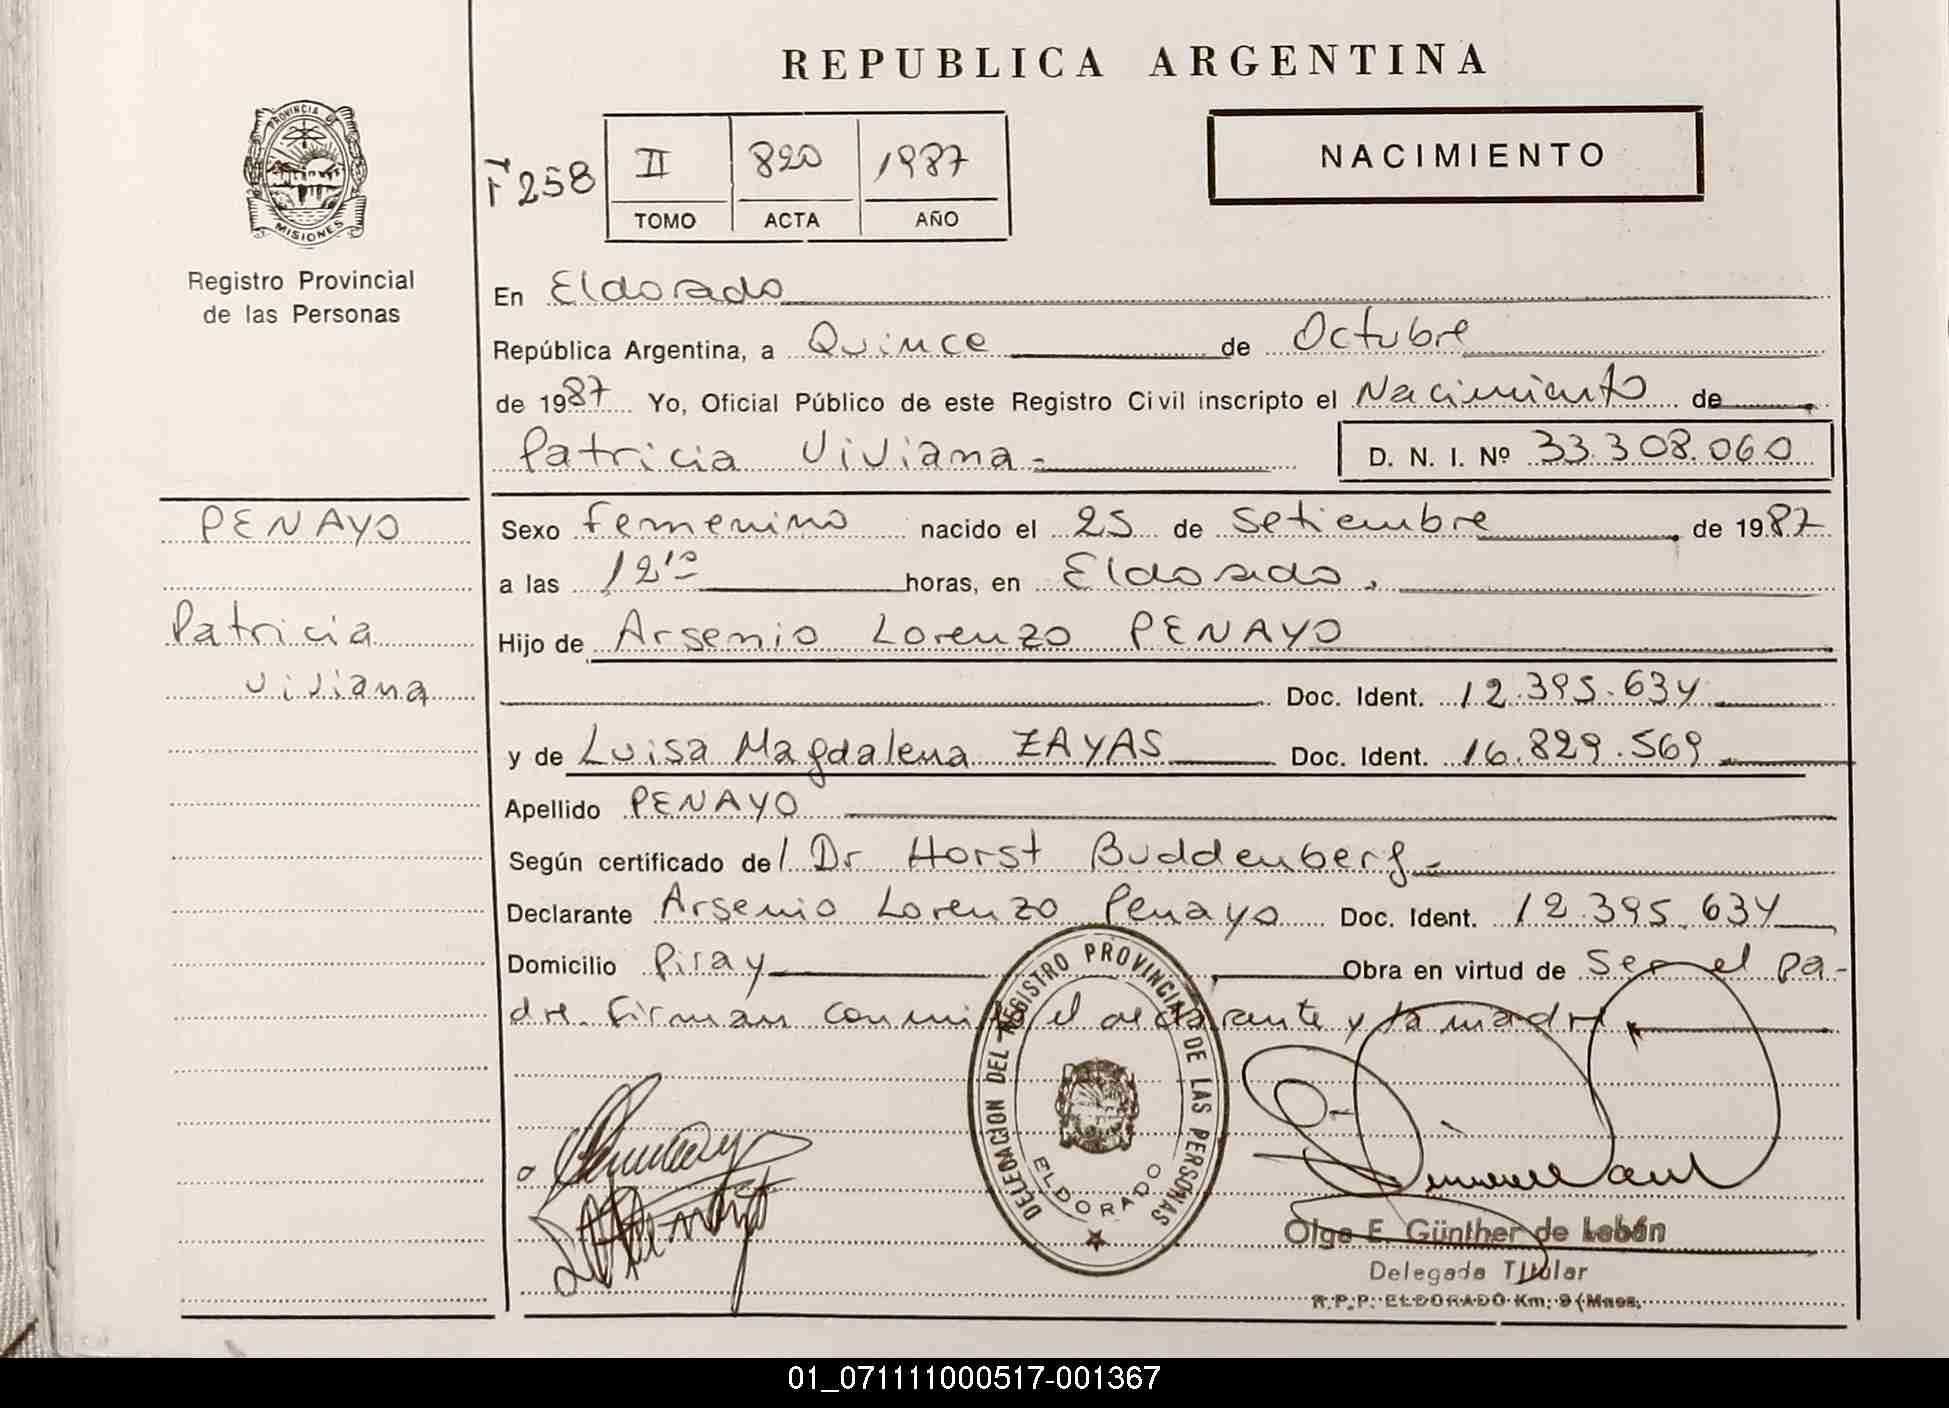 REPUBLICA ARGENTINA
PROVINCIA DE
MISIONES
Registro Provincial
de las Personas
Fº 258
II 820 1987
TOMO ACTA AÑO
NACIMIENTO
En Eldorado
República Argentina, a Quince de Octubre
de 1987 Yo, Oficial Público de este Registro Civil inscripto el Nacimiento de
Patricia Viviana.- D. N. I. Nº 33.308.060
PENAYO
Patricia
Viviana
Sexo femenino nacido el 25 de Setiembre de 1987
a las 12¹⁰ horas, en Eldorado.
Hijo de Arsenio Lorenzo PENAYO
Doc. Ident. 12.395.634
y de Luisa Magdalena ZAYAS Doc. Ident. 16.829.569
Apellido PENAYO
Según certificado de/ Dr Horst Buddenberg.-
Declarante Arsenio Lorenzo Penayo Doc. Ident. 12.395.634
Domicilio Piray Obra en virtud de ser el pa-
dre. Firman conmigo el declarante y la madre
DELEGACION DEL REGISTRO PROVINCIAL DE LAS PERSONAS
ELDORADO
Olga E. Günther de Lobón
Delegada Titular
R.P.P. ELDORADO Km. 9 (Mnes.
01_071111000517-001367